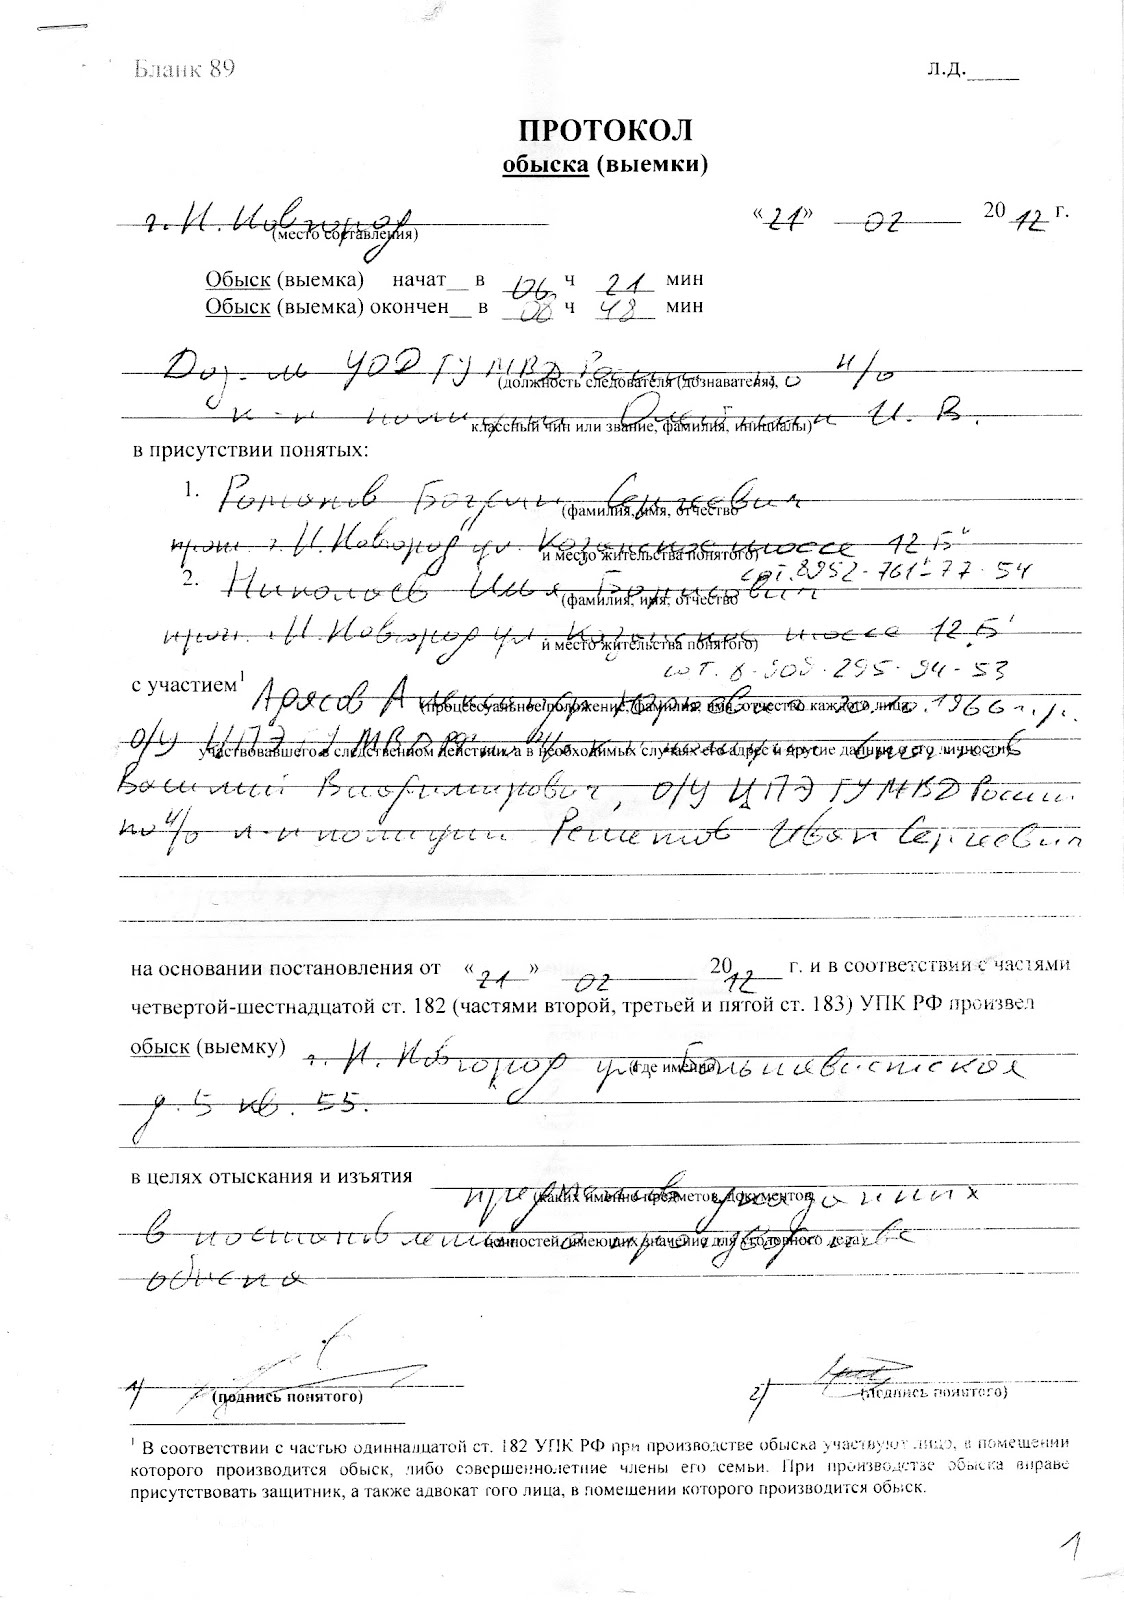 Бланк 89 Л.Д.
ПРОТОКОЛ
обыска (выемки)
г. Н. Новгород «21» 02 2012 г.
(место составления)
Обыск (выемка) начат в 06 ч 21 мин
Обыск (выемка) окончен в 08 ч 48 мин
УОД ГУ МВД России по Н/о
(должность следователя (дознавателя),
к-н полиции И. В.
классный чин или звание, фамилия, инициалы)
в присутствии понятых:
1. Романов Сергеевич
(фамилия, имя, отчество
прож. г. Н. Новгород ул. Казанское шоссе 12
и место жительства понятого)
сот. 8952-761-77-54
2. Николаев Илья Борисович
(фамилия, имя, отчество
прож. г. Н. Новгород ул. Казанское шоссе 12
и место жительства понятого)
сот. 8-908-295-94-53
с участием¹ 1966 г.р.
(процессуальное положение, фамилия, имя, отчество каждого лица,
о/у ЦПЭ ГУ МВД РФ по Н/о
участвовавшего в следственном действии, а в необходимых случаях его адрес и другие данные о его личности)
Василий Владимирович, о/у ЦПЭ ГУ МВД России
по Н/о л-н полиции Решетов Иван Сергеевич
на основании постановления от «21» 02 2012 г. и в соответствии с частями
четвертой-шестнадцатой ст. 182 (частями второй, третьей и пятой ст. 183) УПК РФ произвел
обыск (выемку) г. Н. Новгород ул. Большевистская
(где именно)
д. 5 кв. 55.
в целях отыскания и изъятия предметов указанных
(каких именно предметов, документов,
в постановлении о производстве
ценностей, имеющих значение для уголовного дела)
обыска
1) (подпись понятого) 2) (подпись понятого)
¹ В соответствии с частью одиннадцатой ст. 182 УПК РФ при производстве обыска участвуют лицо, в помещении
которого производится обыск, либо совершеннолетние члены его семьи. При производстве обыска вправе
присутствовать защитник, а также адвокат того лица, в помещении которого производится обыск.
1